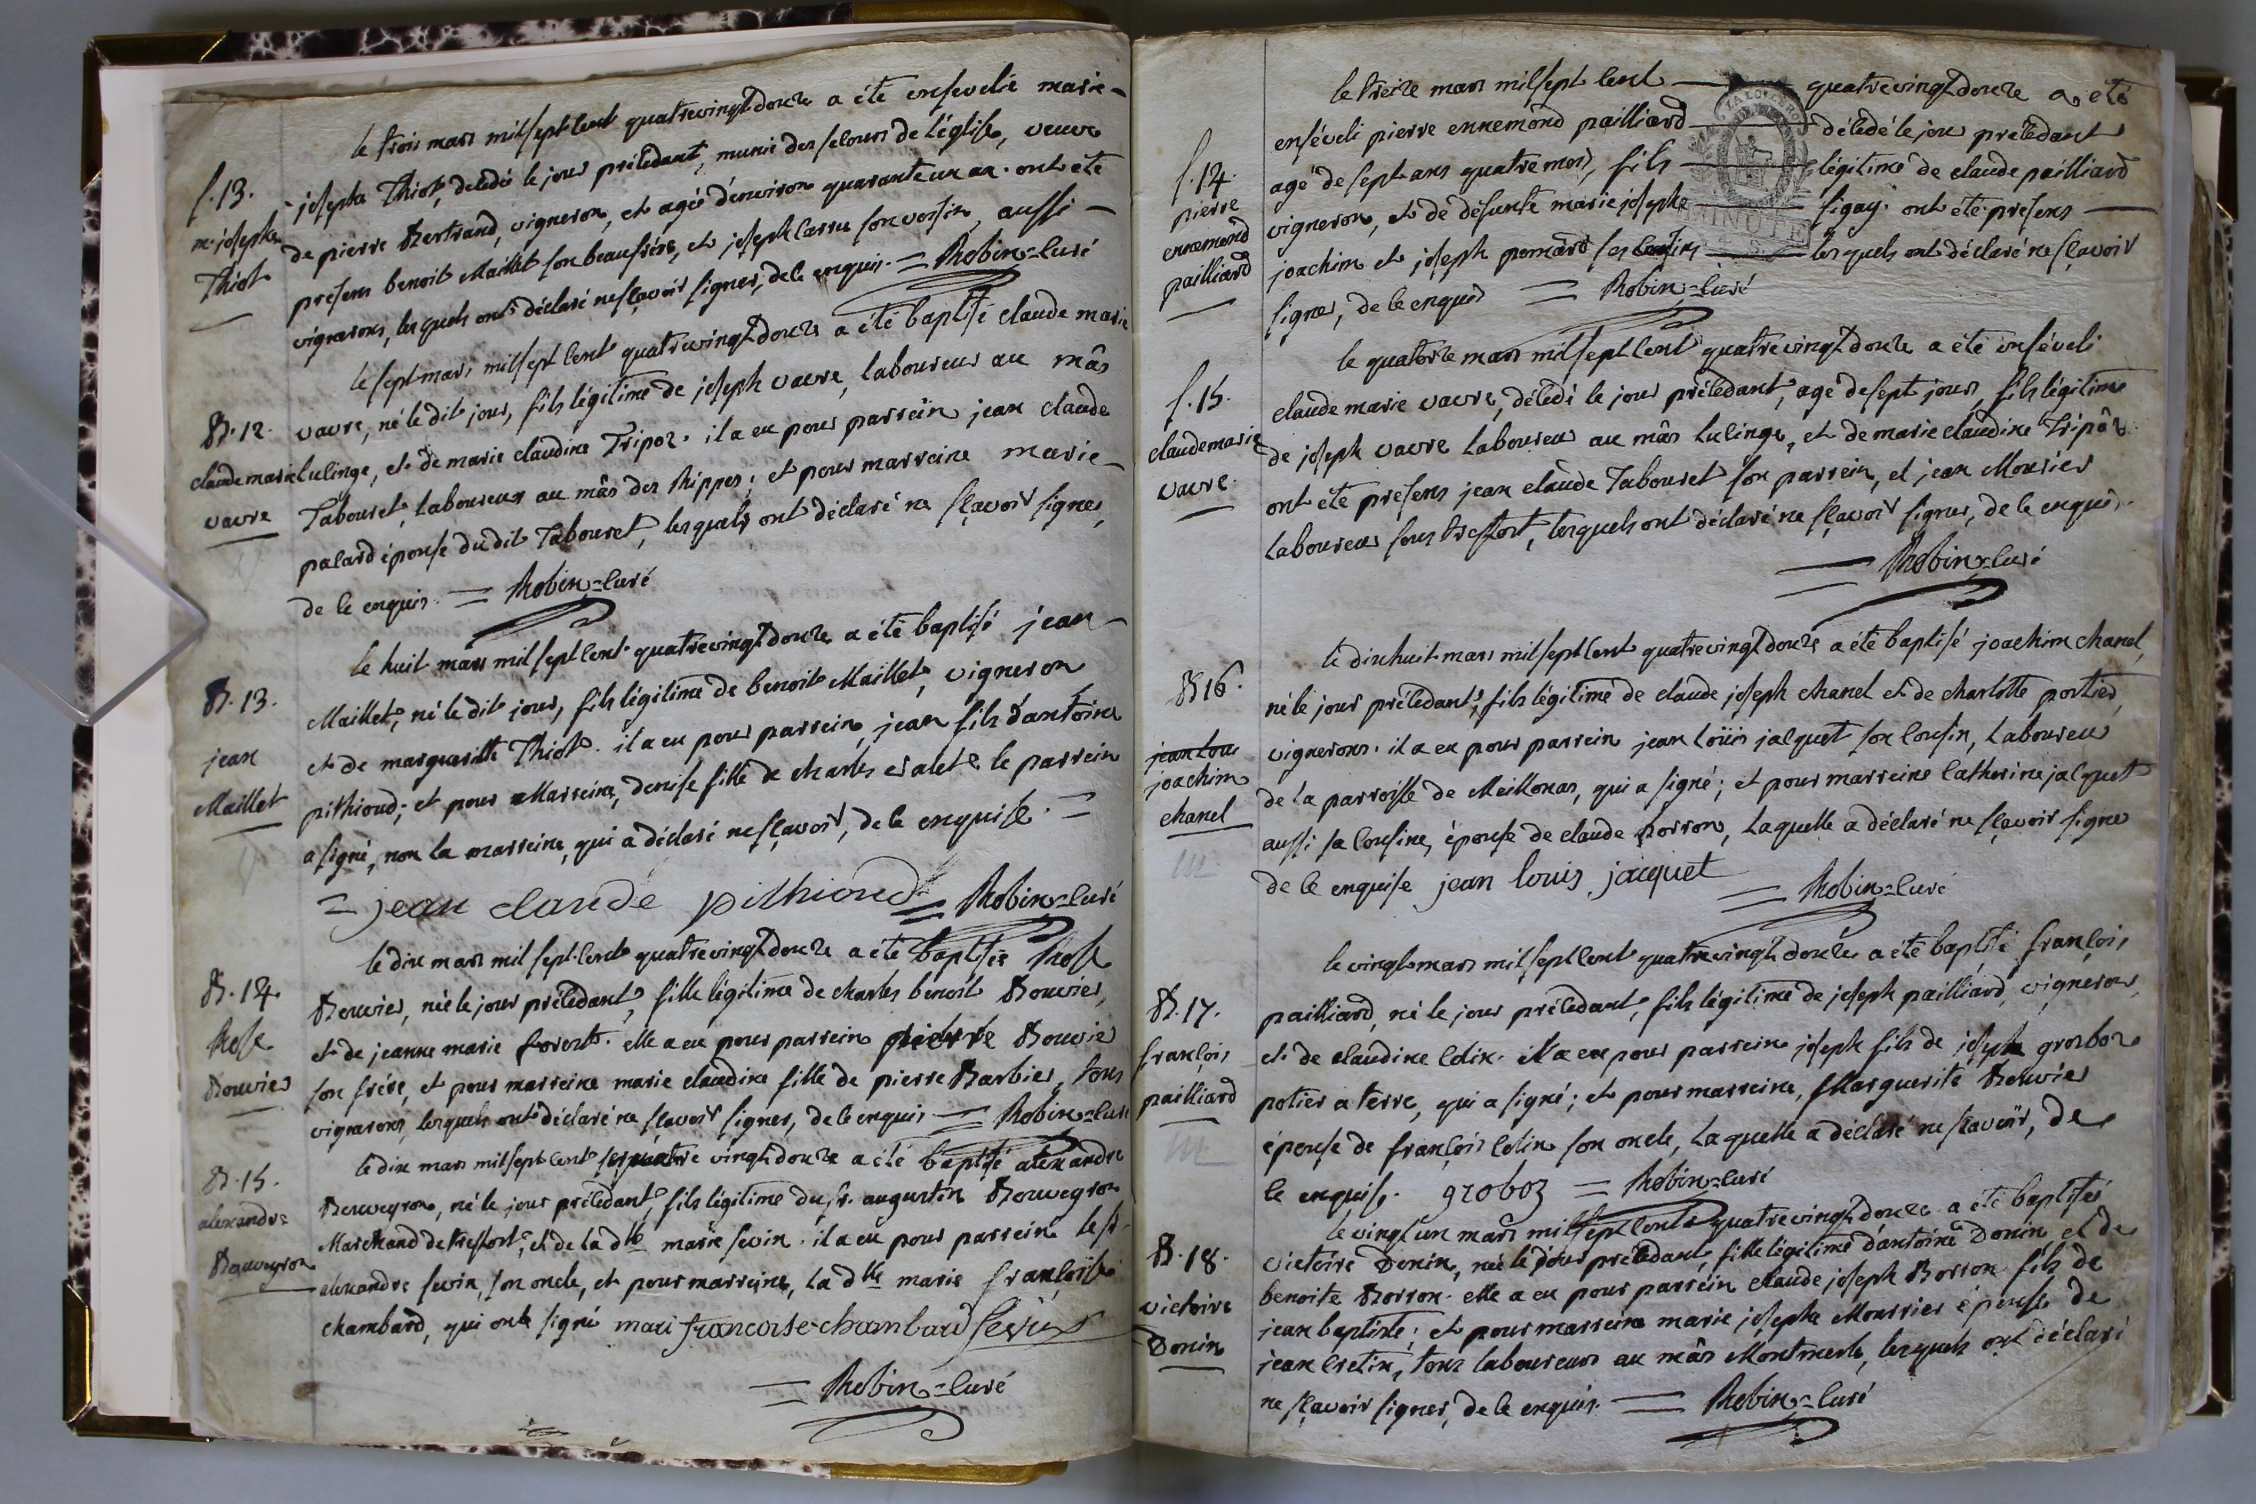 le trois mars mil sept cent quatre vingt douze a été ensevelie marie-
S. 13.
m. josephe
Thiot
josephe Thiot, décédée le jour précédant, munie des secours de l'église, veuve
de pierre Bertrand, vigneron, et agée d'environ quarante un an. ont été
présens benoit Maillet son beaufrére, et joseph carru son voisin, aussi
vignerons, lesquels ont déclaré ne sçavoir signer, de ce enquis. = Robin=curé
le sept mars mil sept cent quatre vingt douze a été baptisé claude marie
B. 12.
claude marie
vavre
vavre, né le dit jour, fils légitime de joseph vavre, laboureur au mâs
lulinge, et de marie claudine Tripoz. il a eu pour parrein jean claude
Tabouret, laboureur au mâs des Rippes; et pour marreine marie
palard épouse du dit Tabouret, lesquels ont déclaré ne sçavoir signer,
de ce enquis. = Robin=curé
le huit mars mil sept cent quatre vingt douze a été baptisé jean
B. 13.
jean
Maillet
Maillet, né le dit jour, fils légitime de benoit Maillet, vigneron
et de margueritte Thiot. il a eu pour parrein, jean fils d'antoine
pithioud; et pour Marreine, denise fille de charles le parrein
a signé, non la marreine, qui a déclaré ne sçavoir, de ce enquise. =
= jean claude pithioud = Robin=curé
le dix mars mil sept cent quatre vingt douze a été baptisée Rose
B. 14.
Rose
Bouvier
Bouvier, née le jour précédant, fille légitime de charles benoit Bouvier,
et de jeanne marie forest. elle a eu pour parrein pierre Bouvier
son frére, et pour marreine marie claudine fille de pierre Barbier, tous
vignerons, lesquels ont déclaré ne sçavoir signer, de ce enquis = Robin=curé
le dix mars mil sept cent quatre vingt douze a été baptisé alexandre
B. 15.
alexandre
Bouveyron
Bouveyron, né le jour précédant, fils légitime du sr. augustin Bouveyron
Marchand de treffort, et de la dlle marie sevin. il a eu pour parrein le sr.
alexandre sevin, son oncle, et pour marreine, la dlle marie françoise
chambard, qui ont signé mari françoise chambard sevin
= Robin=curé
le treize mars mil sept cent quatre vingt douze a été
S. 14.
pierre
ennemond
pailliard
enséveli pierre ennemond pailliard décédé le jour précédant
agé de sept ans quatre mois, fils légitime de claude pailliard
vigneron, et de défunte marie josephe figay. ont été présens
joachim et joseph pomard ses cousins lesquels ont déclaré ne sçavoir
signer, de ce enquis = Robin=curé
le quatorze mars mil sept cent quatre vingt douze a été enséveli
S. 15.
claude marie
vavre.
claude marie vavre, décédé le jour précédant, agé de sept jours, fils légitime
de joseph vavre laboureur au mâs lulinge, et de marie claudine Tripôz.
ont été présens jean claude Tabouret son parrein, et jean Mourier
laboureur sous treffort, lesquels ont déclaré ne sçavoir signer, de ce enquis.
= Robin=curé
le dix huit mars mil sept cent quatre vingt douze a été baptisé joachim chanel,
B 16.
jean lou
joachim
chanel
né le jour précédant, fils légitime de claude joseph chanel et de charlotte portier,
vignerons. il a eu pour parrein jean loüis jacquet son cousin, laboureur
de la parroisse de Meillonas, qui a signé; et pour marreine catherine jacquet
aussi sa cousine, épouse de claude Borron, laquelle a déclaré ne sçavoir signer
de ce enquise jean louis jacquet = Robin=curé
le vingt mars mil sept cent quatre vingt douze a été baptisé françois
B. 17.
françois
pailliard
pailliard, né le jour précédant, fils légitime de joseph pailliard, vigneron,
et de claudine colin. il a eu pour parrein joseph fils de joseph grosboz
potier a terre, qui a signé; et pour marreine, Marguerite Bouvier
épouse de françois colin son oncle, laquelle a déclaré ne sçavoir, de
ce enquise. groboz = Robin=curé
le vingt un mars mil sept cent quatre vingt douze a été baptisée
B. 18.
victoire
Donin
victoire Donin, née le jour précédant, fille légitime d'antoine Donin, et de
benoite Borron. elle a eu pour parrein claude joseph Borron fils de
jean baptiste; et pour marreine marie josephe Mourrier épouse de
jean cretin, tous laboureurs au mâs Montmerle, lesquels ont déclaré
ne sçavoir signer, de ce enquis. = Robin=curé